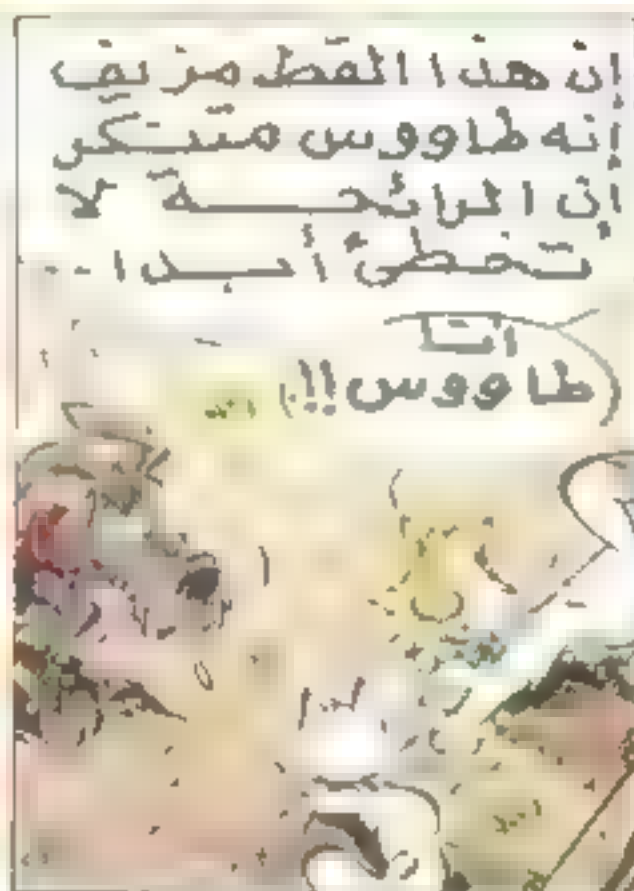 إن هذا القط مزيف
إنه طاووس متنكر
إن الرائحـــة لا
تخطئ أبـدا..
أنا
طاووس!!